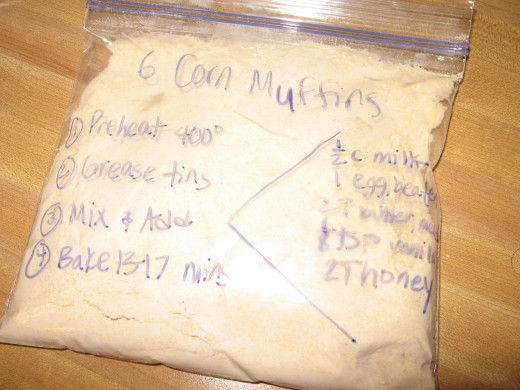 6 Corn Muffins
① Preheat 400°
② Grease tins
③ Mix & Add
④ Bake 13-17 mins
1/2 c milk
1 egg, beaten
T butter,
tsp vanilla
2 T honey